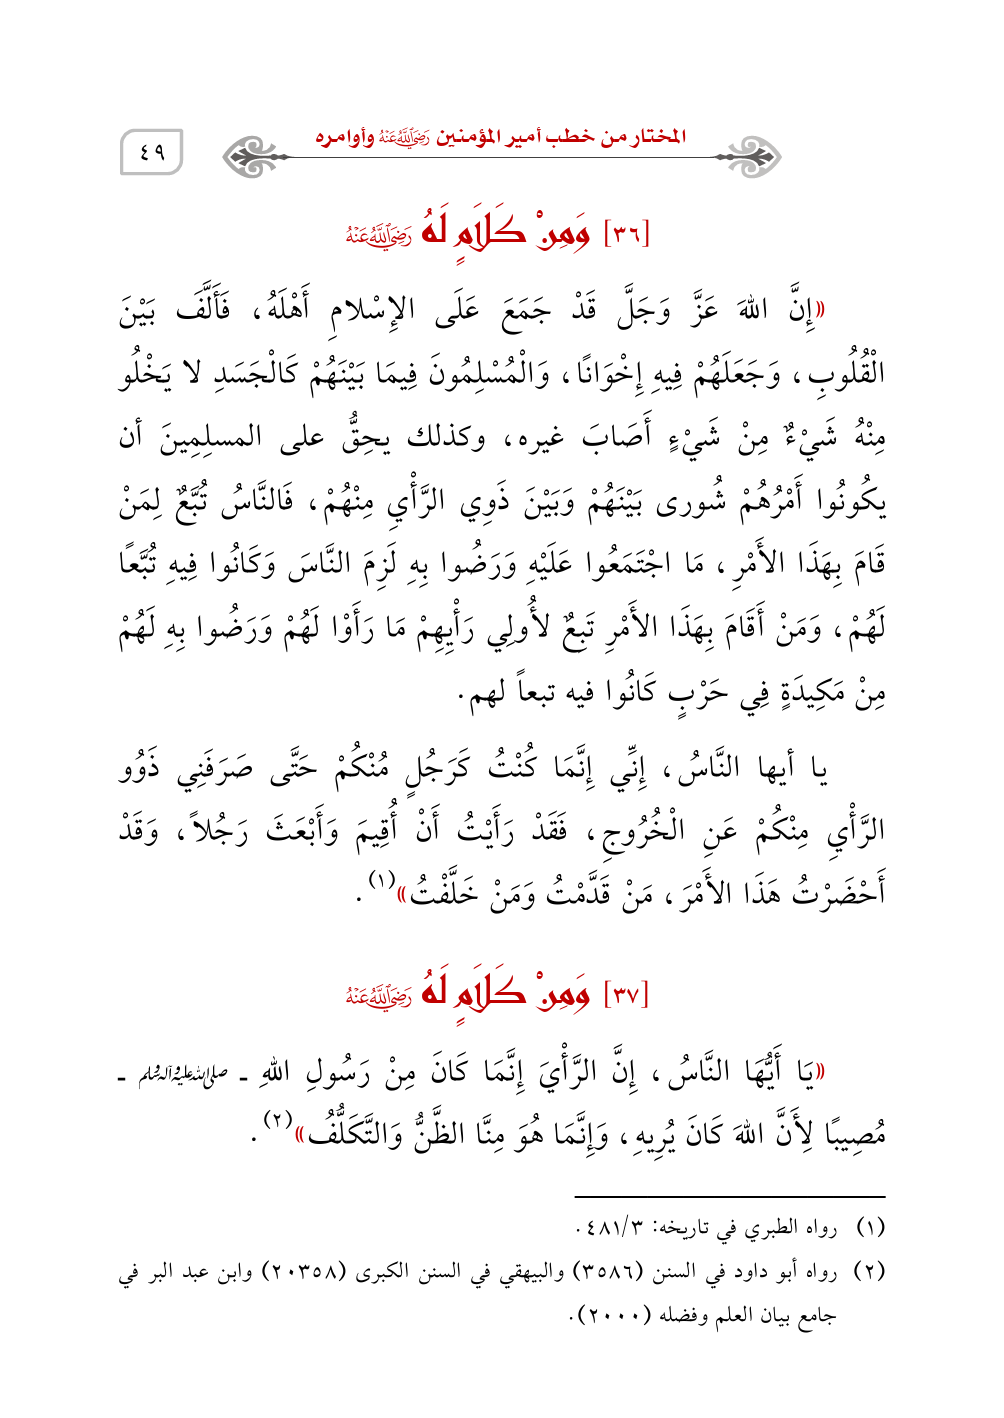 المختار من خطب أمير المؤمنين رَضِيَ اللَّهُ عَنْهُ وأوامره
٤٩
[٣٦] وَمِنْ كَلَامٍ لَهُ رَضِيَ اللَّهُ عَنْهُ
«إِنَّ اللهَ عَزَّ وَجَلَّ قَدْ جَمَعَ عَلَى الإِسْلامِ أَهْلَهُ، فَأَلَّفَ بَيْنَ
الْقُلُوبِ، وَجَعَلَهُمْ فِيهِ إِخْوَانًا، وَالْمُسْلِمُونَ فِيمَا بَيْنَهُمْ كَالْجَسَدِ لا يَخْلُو
مِنْهُ شَيْءٌ مِنْ شَيْءٍ أَصَابَ غيره، وكذلك يحِقُّ على المسلِمِينَ أن
يكُونُوا أَمْرُهُمْ شُورى بَيْنَهُمْ وَبَيْنَ ذَوِي الرَّأْيِ مِنْهُمْ، فَالنَّاسُ تُبَّعٌ لِمَنْ
قَامَ بِهَذَا الأَمْرِ، مَا اجْتَمَعُوا عَلَيْهِ وَرَضُوا بِهِ لَزِمَ النَّاسَ وَكَانُوا فِيهِ تُبَّعًا
لَهُمْ، وَمَنْ أَقَامَ بِهَذَا الأَمْرِ تَبِعٌ لأُولِي رَأْيِهِمْ مَا رَأَوْا لَهُمْ وَرَضُوا بِهِ لَهُمْ
مِنْ مَكِيدَةٍ فِي حَرْبٍ كَانُوا فيه تبعاً لهم.
يا أيها النَّاسُ، إِنِّي إِنَّمَا كُنْتُ كَرَجُلٍ مُنْكُمْ حَتَّى صَرَفَنِي ذَوُو
الرَّأْيِ مِنْكُمْ عَنِ الْخُرُوجِ، فَقَدْ رَأَيْتُ أَنْ أُقِيمَ وَأَبْعَثَ رَجُلاً، وَقَدْ
أَحْضَرْتُ هَذَا الأَمْرَ، مَنْ قَدَّمْتُ وَمَنْ خَلَّفْتُ»(١).
[٣٧] وَمِنْ كَلَامٍ لَهُ رَضِيَ اللَّهُ عَنْهُ
«يَا أَيُّهَا النَّاسُ، إِنَّ الرَّأْيَ إِنَّمَا كَانَ مِنْ رَسُولِ اللهِ ـ صلى الله عليه وآله وسلم ـ
مُصِيبًا لِأَنَّ اللهَ كَانَ يُرِيهِ، وَإِنَّمَا هُوَ مِنَّا الظَّنُّ وَالتَّكَلُّفُ»(٢).
(١) رواه الطبري في تاريخه: ٤٨١/٣.
(٢) رواه أبو داود في السنن (٣٥٨٦) والبيهقي في السنن الكبرى (٢٠٣٥٨) وابن عبد البر في
جامع بيان العلم وفضله (٢٠٠٠).